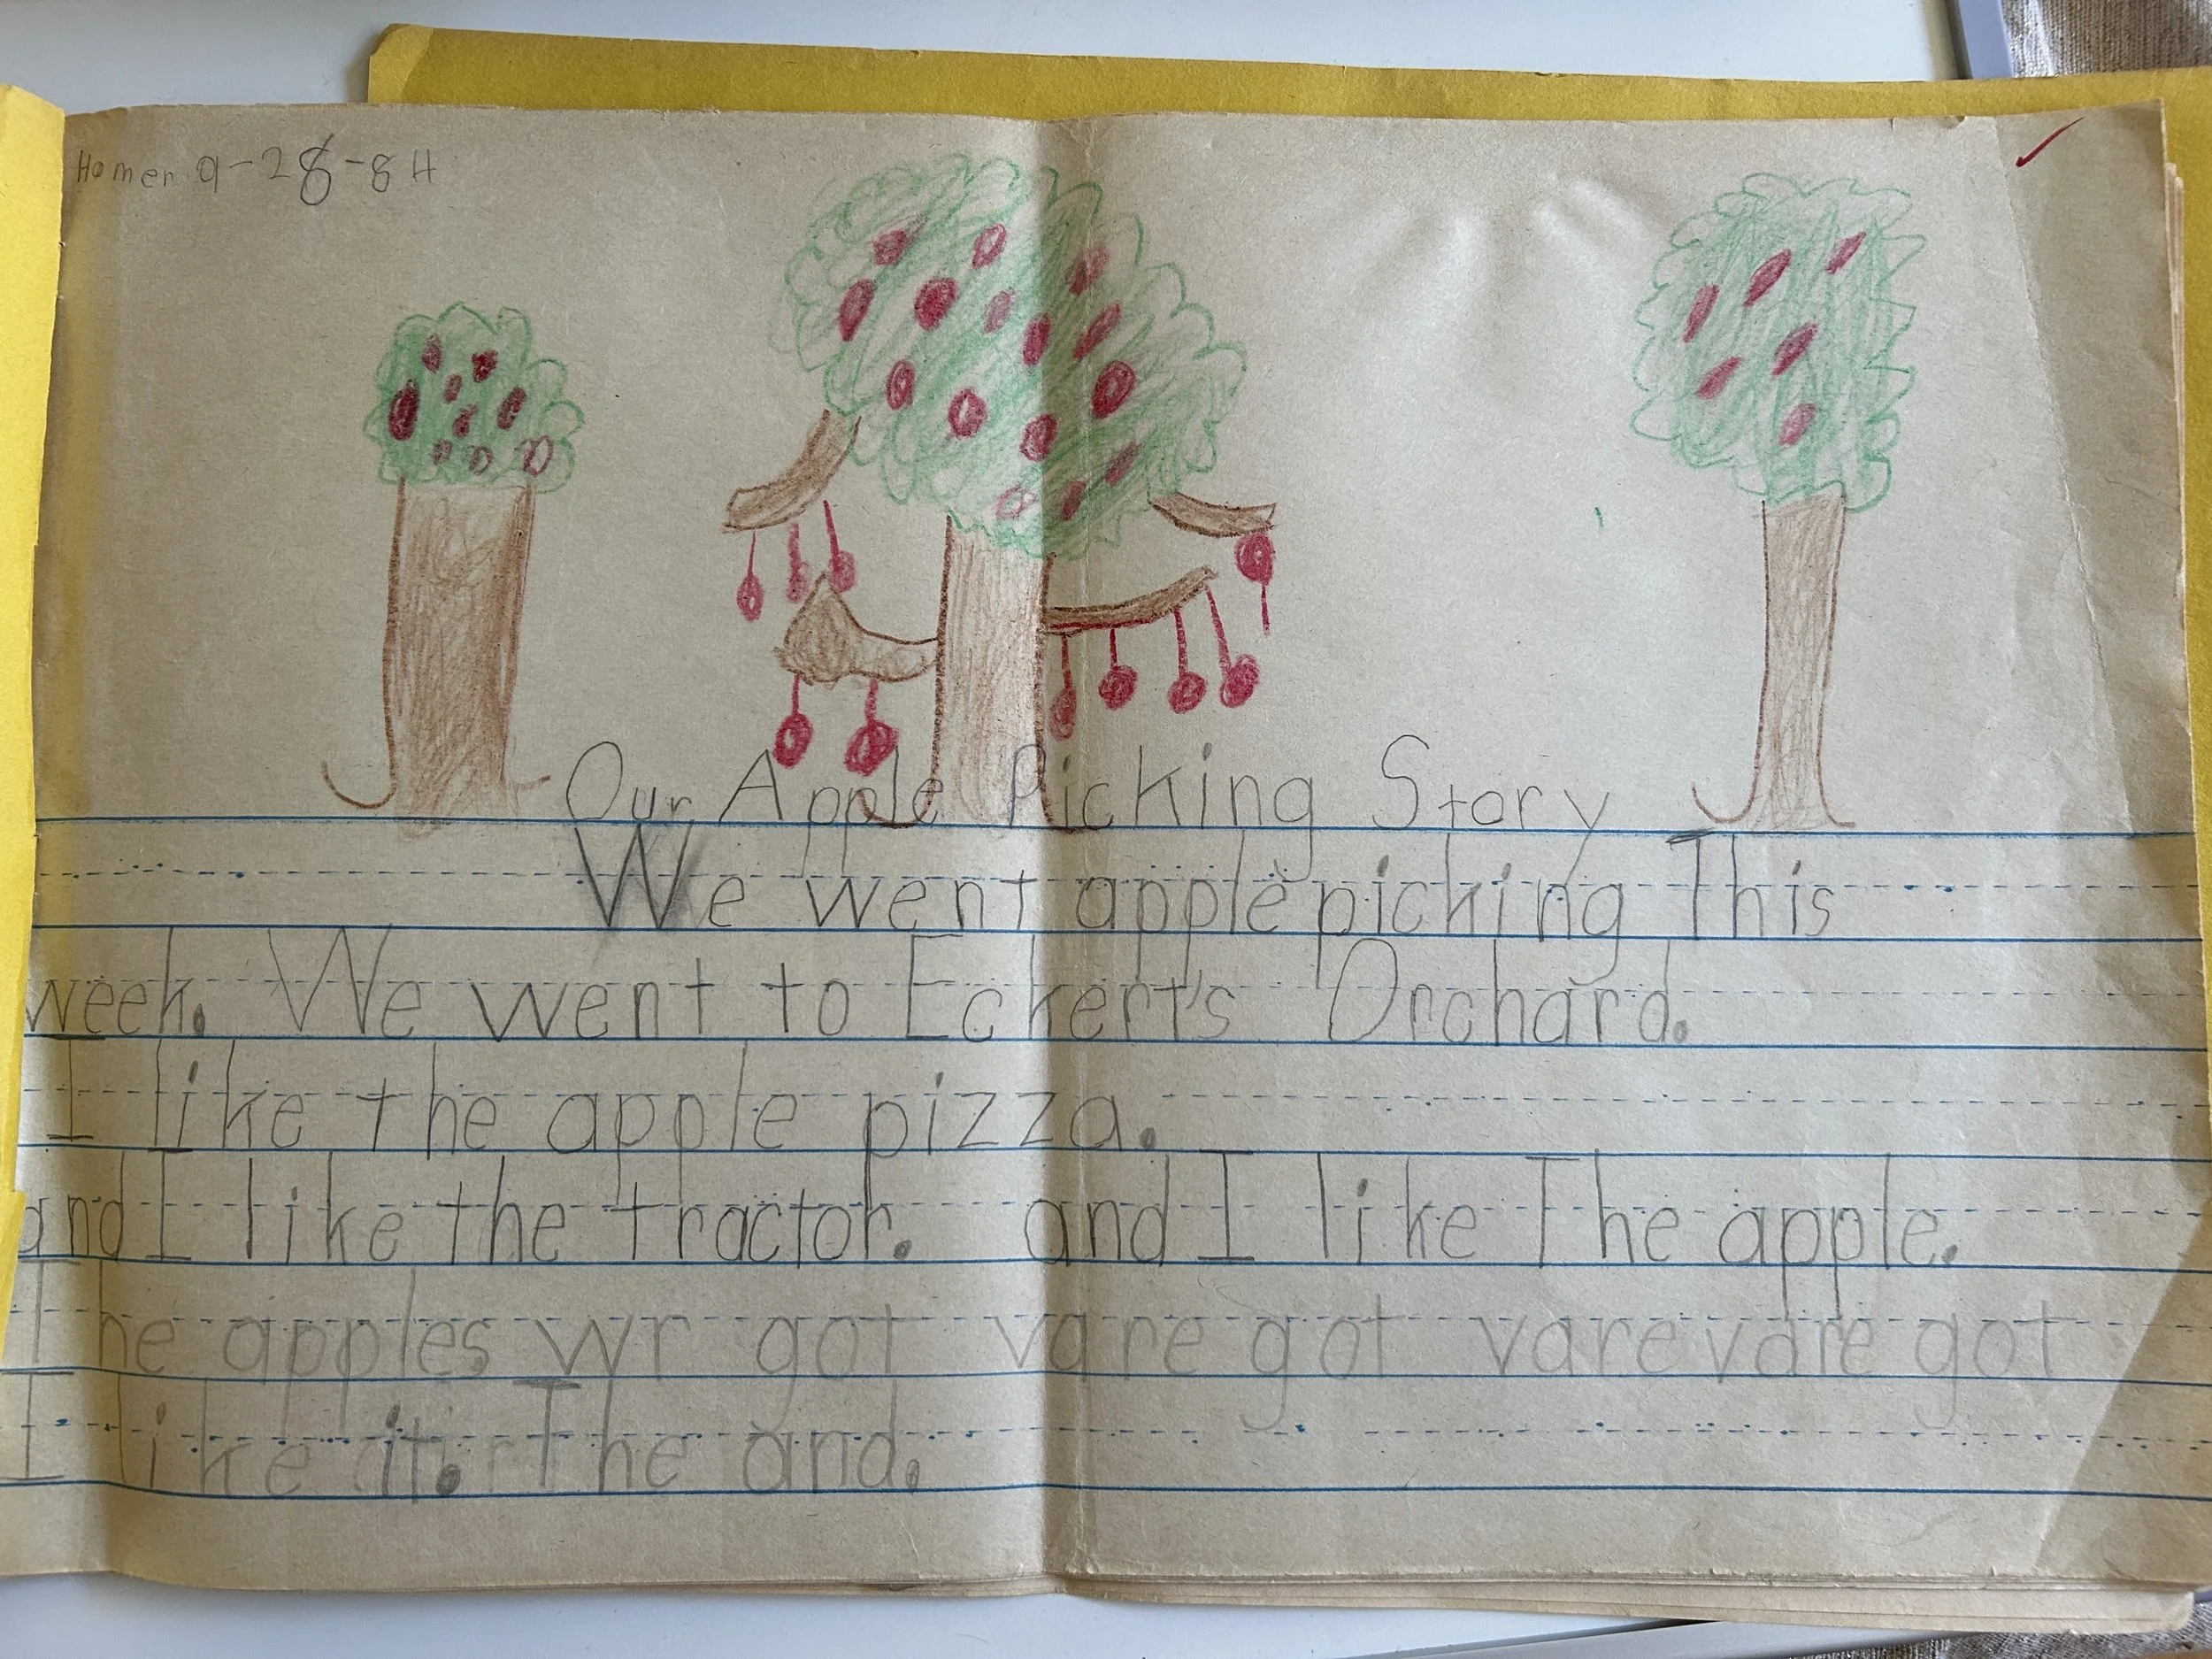 Homer 9-28-84
Our Apple Picking Story
We went apple picking This
week. We went to Eckert's Orchard.
I like the apple pizza.
and I like the tractor. and I like The apple.
The apples wr got vare got vare vare got
I like it. The and.